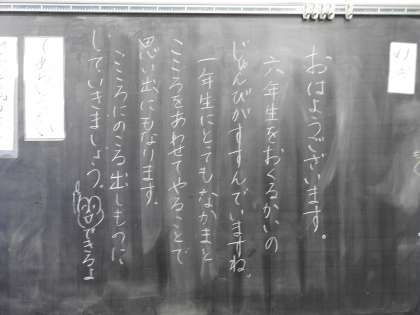 おはようございます。
六年生をおくるかいの
じゅんびがすすんでいますね。
一年生にとってもなかまと
こころをあわせてやることで
思い出にもなります。
こころにのこる出しものに
していきましょう。
できるよ